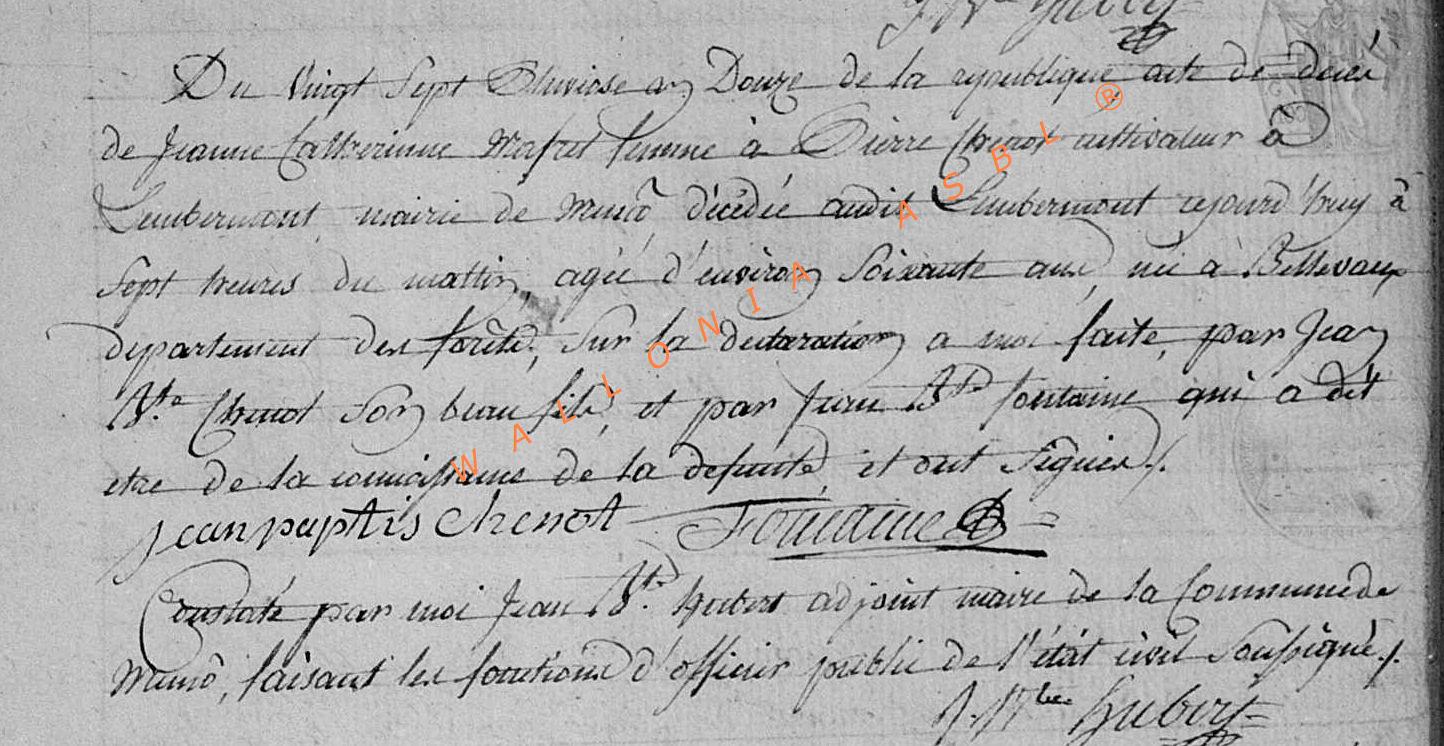 J. Bte Hubert
Du Vingt Sept Pluviose an Douze de la republique acte de decès
de Jeanne Catherinne Mafret femme à Pierre Chenot cultivateur à
Lembermont, mairie de Munô décédée audit Lembermont cejourd'huy à
Sept heures du mattin, agée d'environ Soixante ans, née à Bellevaux
departement des forêts, Sur la declaration a moi faite, par Jean
Bte Chenot Son beau fils, et par Jean Bte fontaine qui a dit
etre de la connoissance de la defunte, et ont Signés /.
jean paptis chenot Fontaine
Constaté par moi Jean Bte. hubert adjoint maire de la Commune de
Munô, faisant les fonctions d'officier public de l'état civil Soussigné /.
J. Bte Hubert
WALLONIA ASBL ®